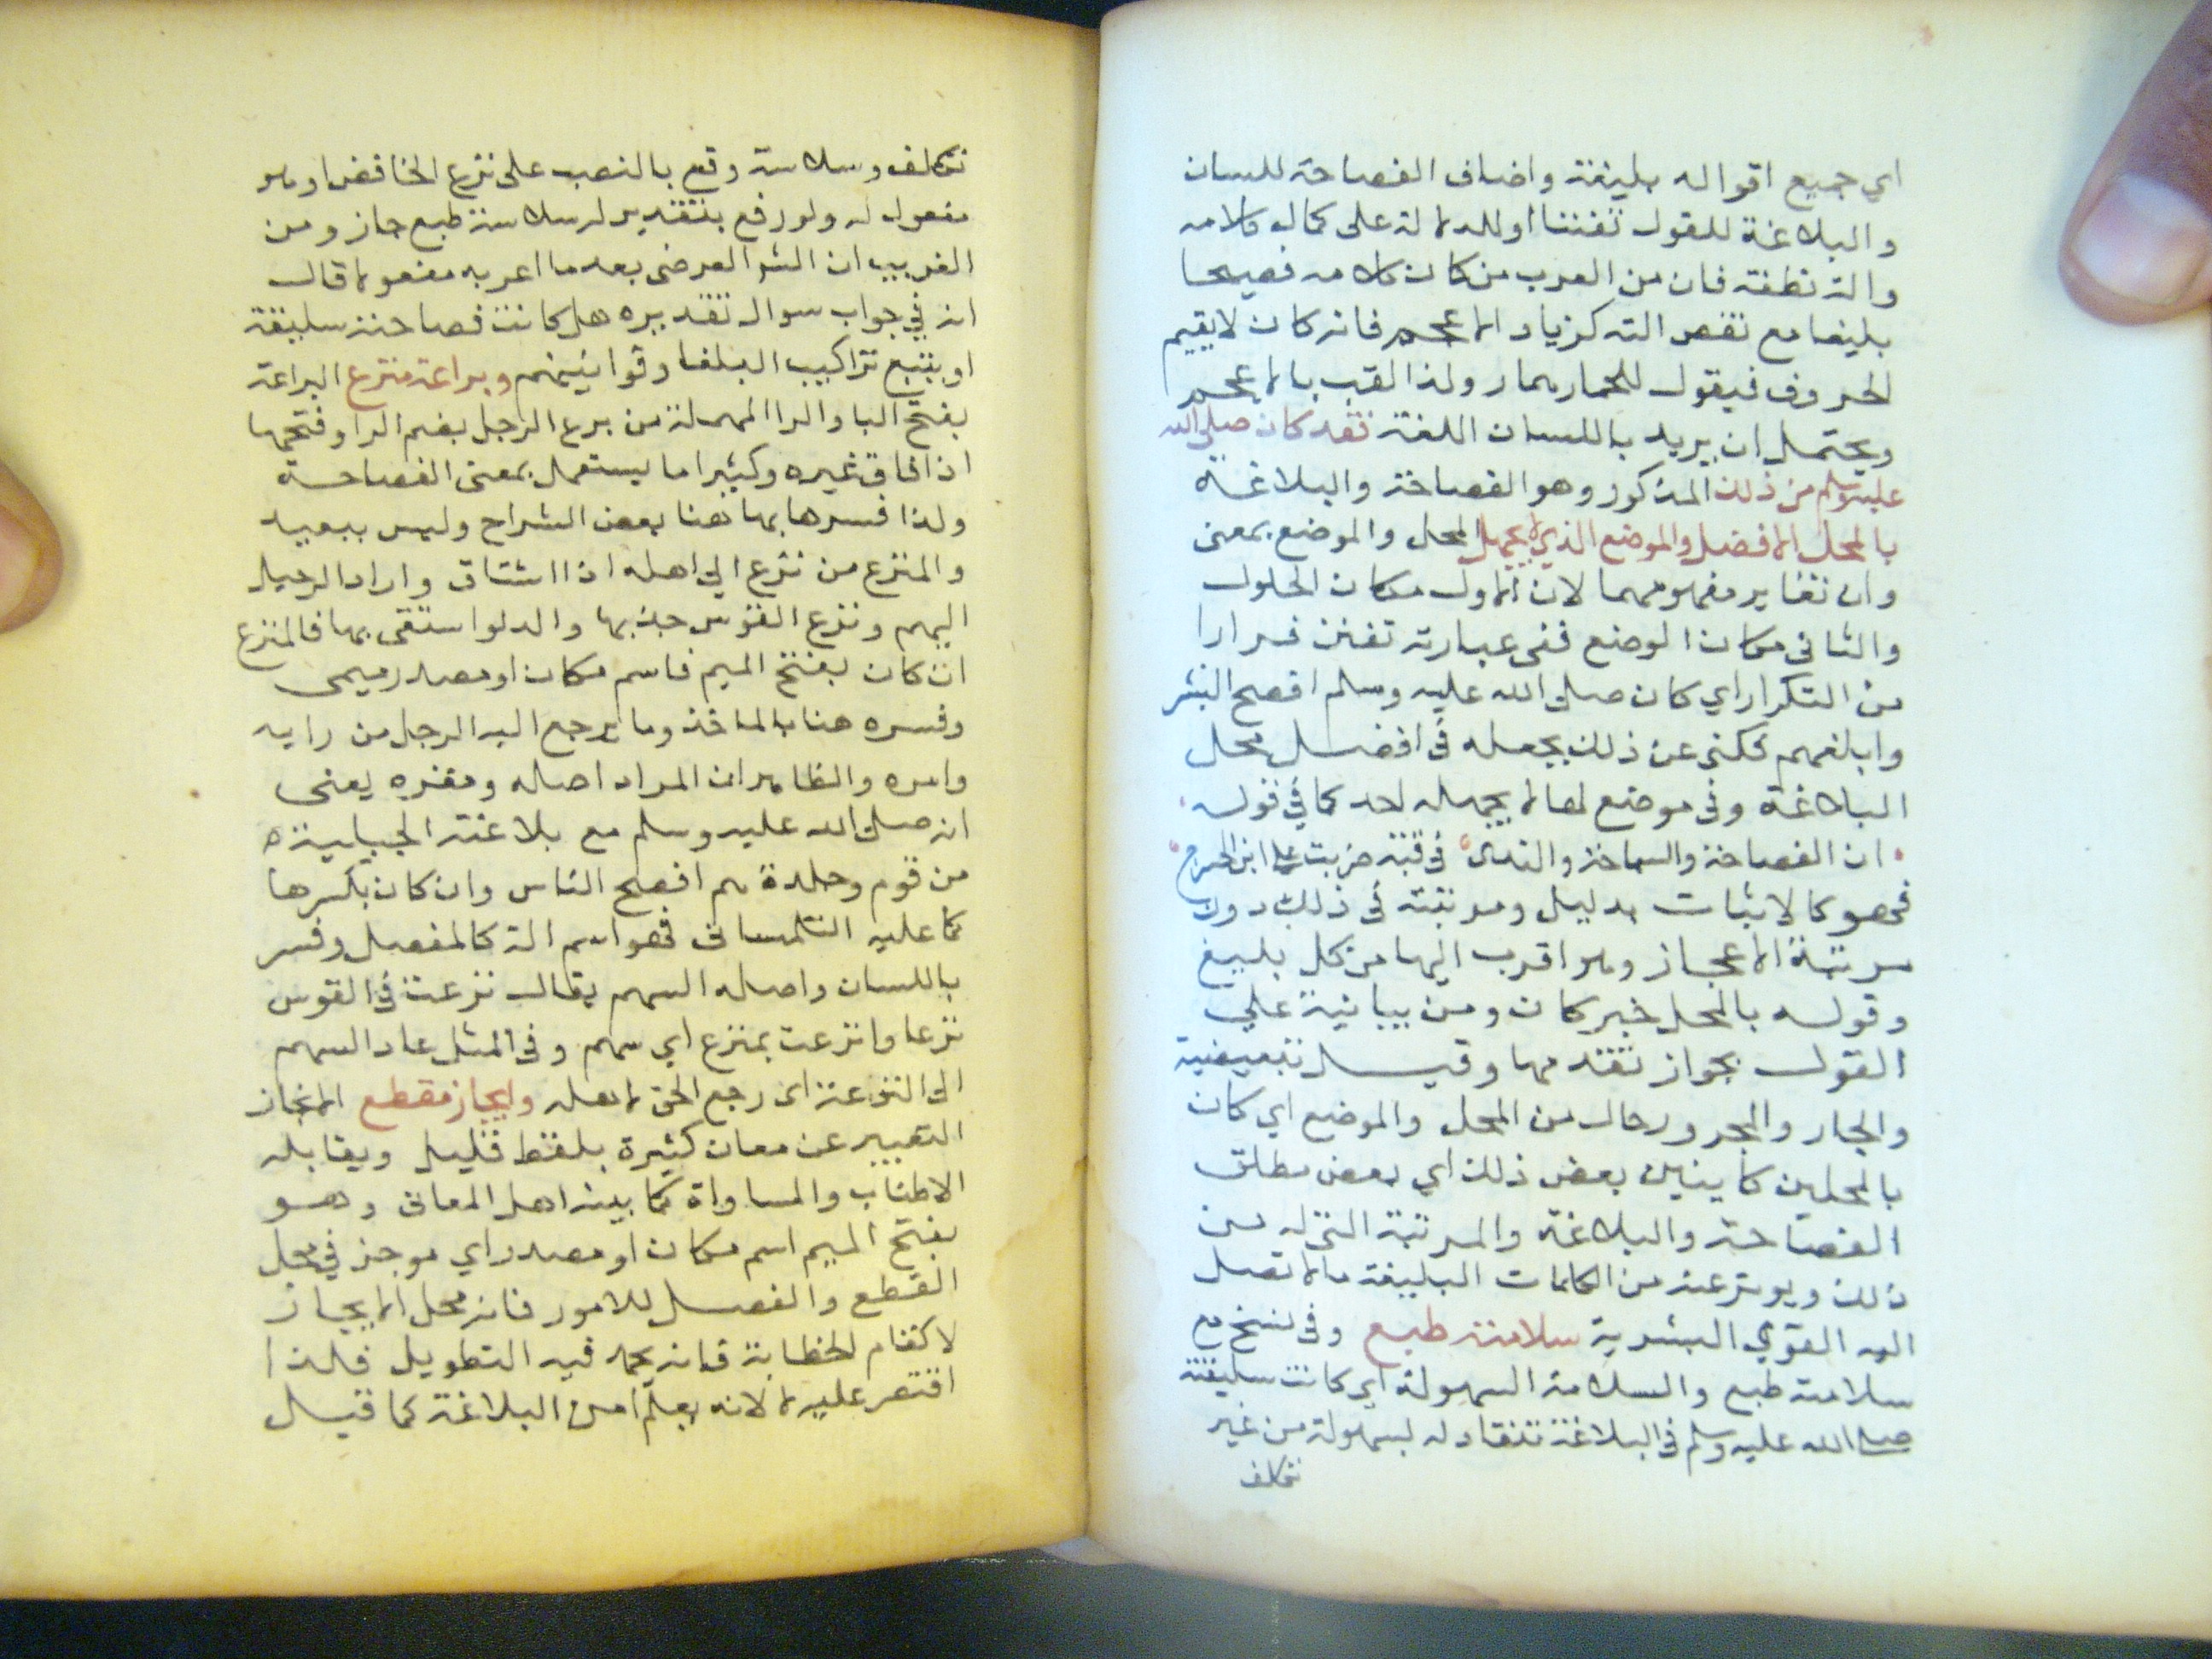 اي جميع اقواله بليغة واضاف الفصاحة للسان
والبلاغة للقول تفننا اوللدلالة على كمال كلامه
والة نطقه فان من العرب من كان كلامه فصيحا
بليغا مع نقص الته كزياد الاعجم فانه كان لايقيم
الحروف فيقول للحمار همار ولذا لقب بالاعجم
ويحتمل ان يريد باللسان اللغة فقد كان صلى الله
عليه وسلم من ذلك المذكور وهو الفصاحة والبلاغة
بالمحل الافضل والموضع الذي لا يجهل المحل والموضع بمعنى
وان تغاير مفهومهما لان الاول مكان الحلول
والثاني مكان الوضع ففي عبارته تفنن فرارا
من التكرار اي كان صلى الله عليه وسلم افصح البشر
وابلغهم فكنى عن ذلك بجعله في افضل محل
البلاغة وفي موضع لها لا يجهله احد كما في قوله
ان الفصاحة والسماحة والندى في قبة ضربت على ابن الحشرج
فهو كالاثبات بدليل ومرتبته في ذلك دون
مرتبة الاعجاز وهو اقرب اليها من كل بليغ
وقوله بالمحل خبر كان ومن بيانية على
القول بجواز تقدمها وقيل تبعيضية
والجار والمجرور حال من المحل والموضع اي كان
بالمحلين كاينين بعض ذلك اي بعض مطلق
الفصاحة والبلاغة والمرتبة التي له من
ذلك وبويترعنه من الكلمات البليغة مالا تصل
اليه القوي البشرية سلاسة طبع وفي نسخ مع
سلاسة طبع والسلاسة السهولة اي كانت سليقته
صلى الله عليه وسلم في البلاغة تنقاد له بسهولة من غير
تكلف
تكلف وسلاسة وقع بالنصب على نزع الخافض او هو
مفعول له ولو رفع بتقدير له سلاسة طبع جاز ومن
الغريب ان الشر العرضي بعد ما اعربه مفعولا قال
انه في جواب سوال تقديره هل كانت فصاحته سليقة
او بتتبع تراكيب البلغا وقوانينهم وبراعة منزع البراعة
بفتح البا والرا المهملة من برع الرجل بضم الرا وفتحها
اذا فاق غيره وكثيرا ما يستعمل بمعنى الفصاحة
ولذا فسرها بها هنا بعض الشراح وليس ببعيد
والمنزع من نزع الي اهله اذا اشتاق واراد الرحيل
اليهم ونزع القوس جذبها والدلو استقى بها فالمنزع
ان كان بفتح الميم فاسم مكان او مصدر ميمي
وفسره هنا بالماخذ وما يرجع اليه الرجل من رايه
وامره والظاهر ان المراد اصله ومقره يعنى
انه صلى الله عليه وسلم مع بلاغته الجبلية
من قوم وحلدة هم افصح الناس وان كان بكسرها
كما عليه التلمساني فهو اسم الة كالمفصل وفسر
باللسان واصله السهم يقال نزعت في القوس
نزعا وانتزعت بمنزع اي سهم وفي المثل عاد السهم
الى النزعة اي رجع الحق لاهله وايجاز مقطع الايجاز
التعبير عن معان كثيرة بلفظ قليل ويقابله
الاطناب والمساواة كما بينه اهل المعاني وهو
بفتح الميم اسم مكان او مصدر اي موجز في محل
القطع والفصل للامور فانه محل الايجاز
لا كمقام الخطابة فانه يحمد فيه التطويل فلذا
اقتصر عليه لا لانه يعلم امن البلاغة كما قيل